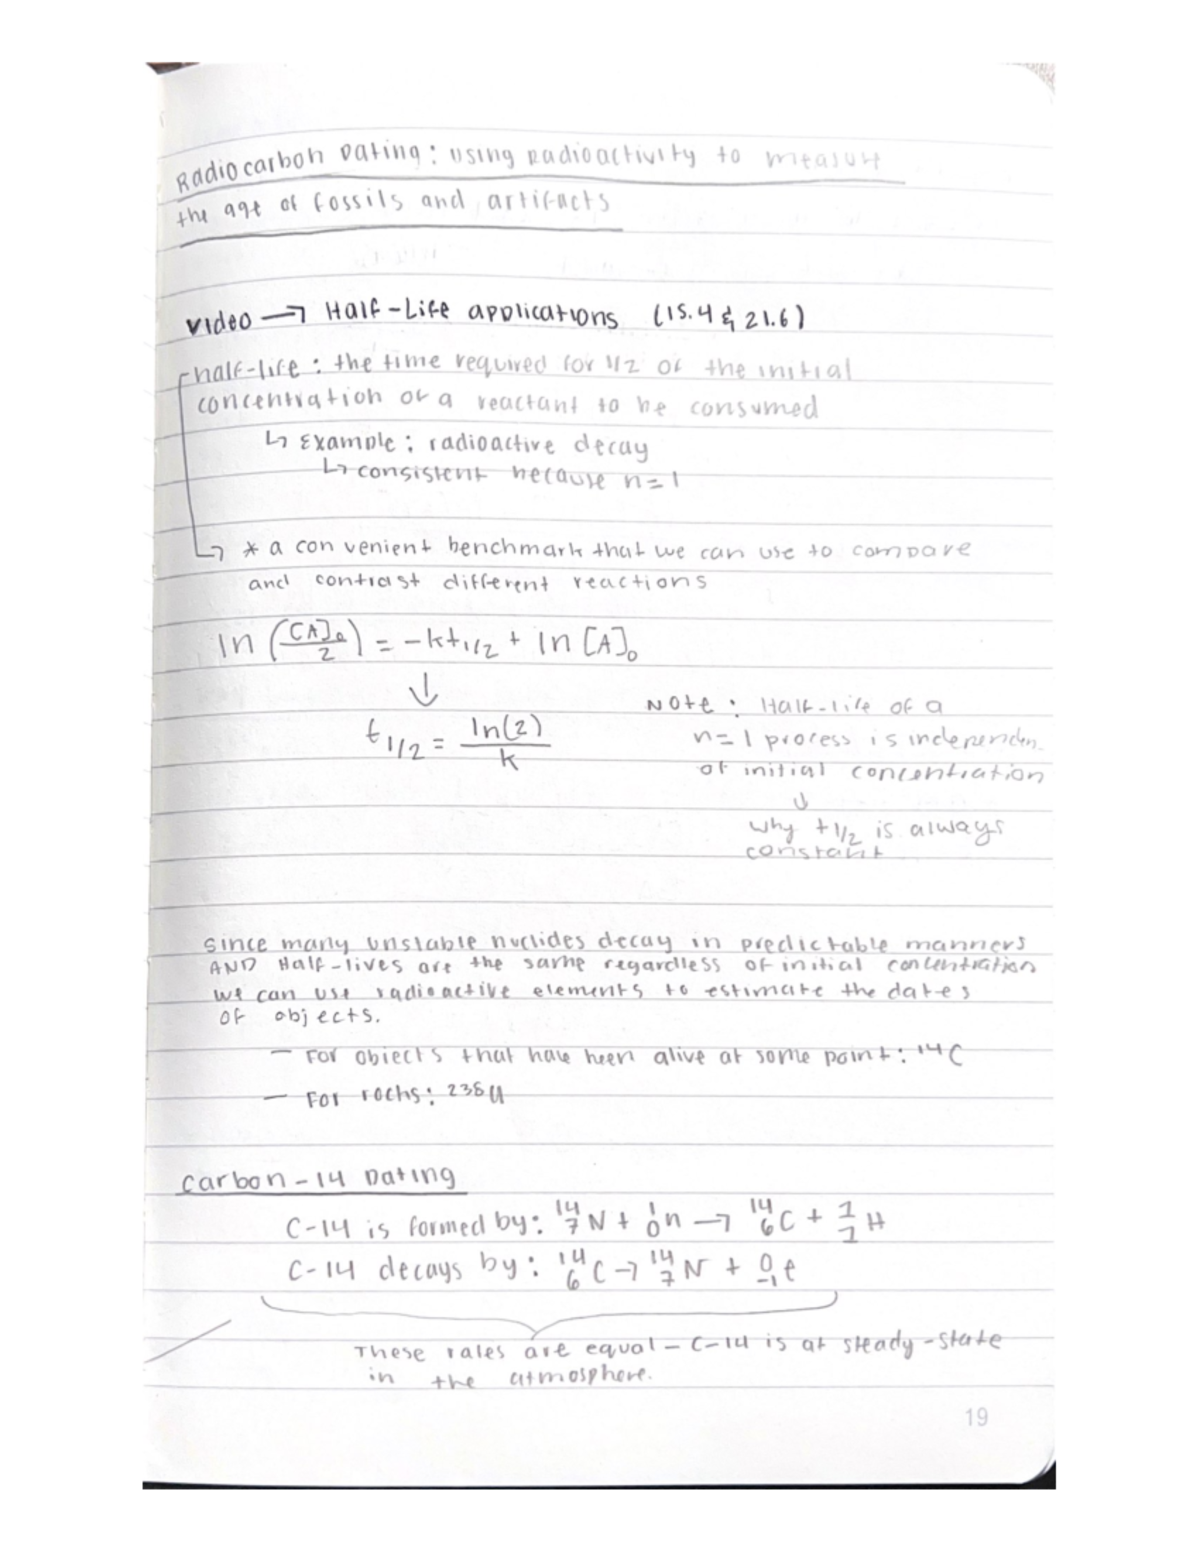 Radiocarbon Dating: using Radioactivity to measure
the age of fossils and artifacts
video → Half-Life applications (15.4 & 21.6)
half-life: the time required for 1/2 of the initial
concentration of a reactant to be consumed
↳ Example: radioactive decay
↳ consistent because n=1
↳ * a convenient benchmark that we can use to compare
and contrast different reactions
ln ([A]₀/2) = -kt₁/₂ + ln [A]₀
↓
t₁/₂ = ln(2)/k
Note: Half-life of a
n=1 process is independen
of initial concentration
↓
why t₁/₂ is always
constant
since many unstable nuclides decay in predictable manners
AND Half-lives are the same regardless of initial concentration
we can use radioactive elements to estimate the dates
of objects.
— For objects that have been alive at some point: ¹⁴C
— For rocks: 238U
Carbon-14 Dating
C-14 is formed by: ¹⁴₇N + ¹₀n → ¹⁴₆C + ¹₁H
C-14 decays by: ¹⁴₆C → ¹⁴₇N + ⁰₋₁e
These rates are equal — C-14 is at steady-state
in the atmosphere.
19